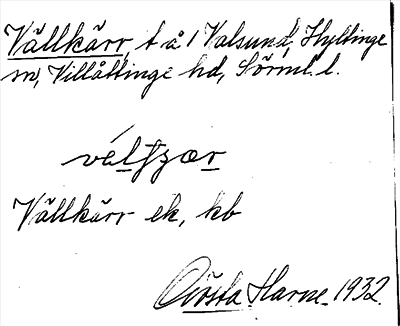 Vällkärr, t å 1 Valsund, Hyltinge
sn, Villåttinge hd, Sörml. l.
Vällkärr ek, kb
Gösta Harne 1932